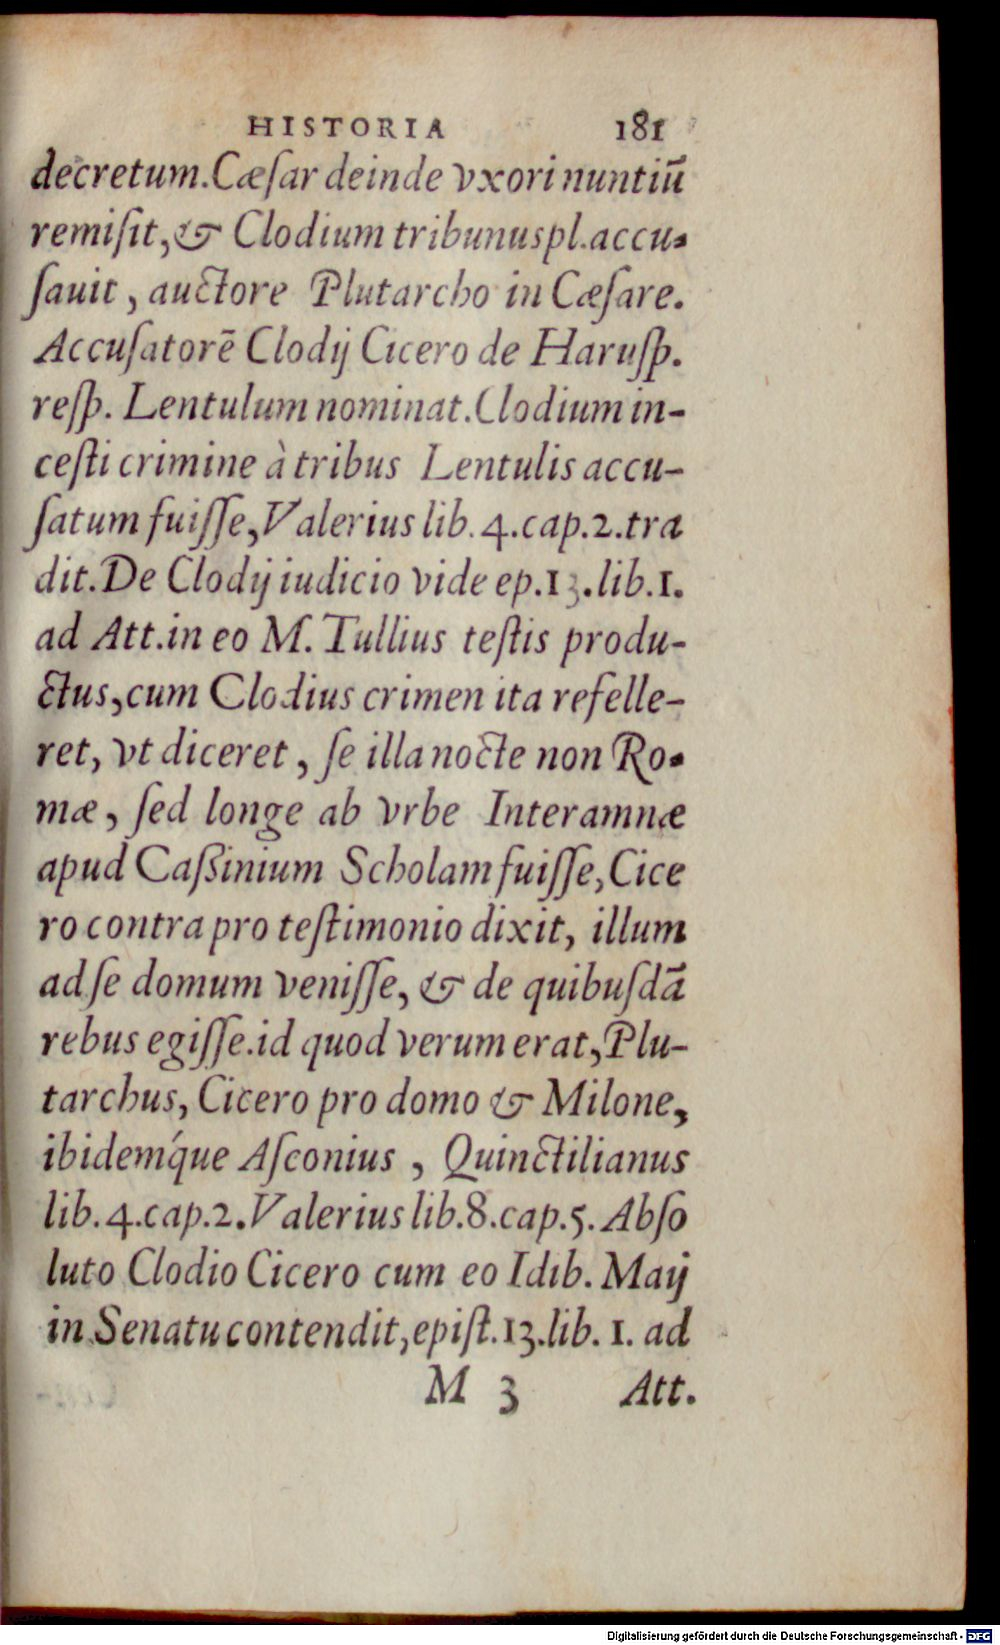 HISTORIA 181
decretum.Cæſar deinde vxori nuntiū
remiſit,& Clodium tribunus pl.accu-
ſauit, auctore Plutarcho in Cæſare.
Accuſatorē Clodij Cicero de Haruſp.
reſp. Lentulum nominat.Clodium in-
ceſti crimine à tribus Lentulis accu-
ſatum fuiſſe,Valerius lib. 4.cap.2.tra
dit.De Clodij iudicio vide ep.13.lib.1.
ad Att.in eo M. Tullius teſtis produ-
ctus,cum Clodius crimen ita refelle-
ret, vt diceret, ſe illa nocte non Ro-
mæ, ſed longe ab vrbe Interamnæ
apud Caßinium Scholam fuiſſe,Cice
ro contra pro teſtimonio dixit, illum
ad ſe domum veniſſe, & de quibuſdā
rebus egiſſe.id quod verum erat,Plu-
tarchus, Cicero pro domo & Milone,
ibidemq́ue Aſconius, Quinctilianus
lib.4.cap.2.Valerius lib.8.cap.5.Abſo
luto Clodio Cicero cum eo Idib. Maij
in Senatu contendit,epiſt.13.lib. 1. ad
M 3 Att.
Digitalisierung gefördert durch die Deutsche Forschungsgemeinschaft - DFG